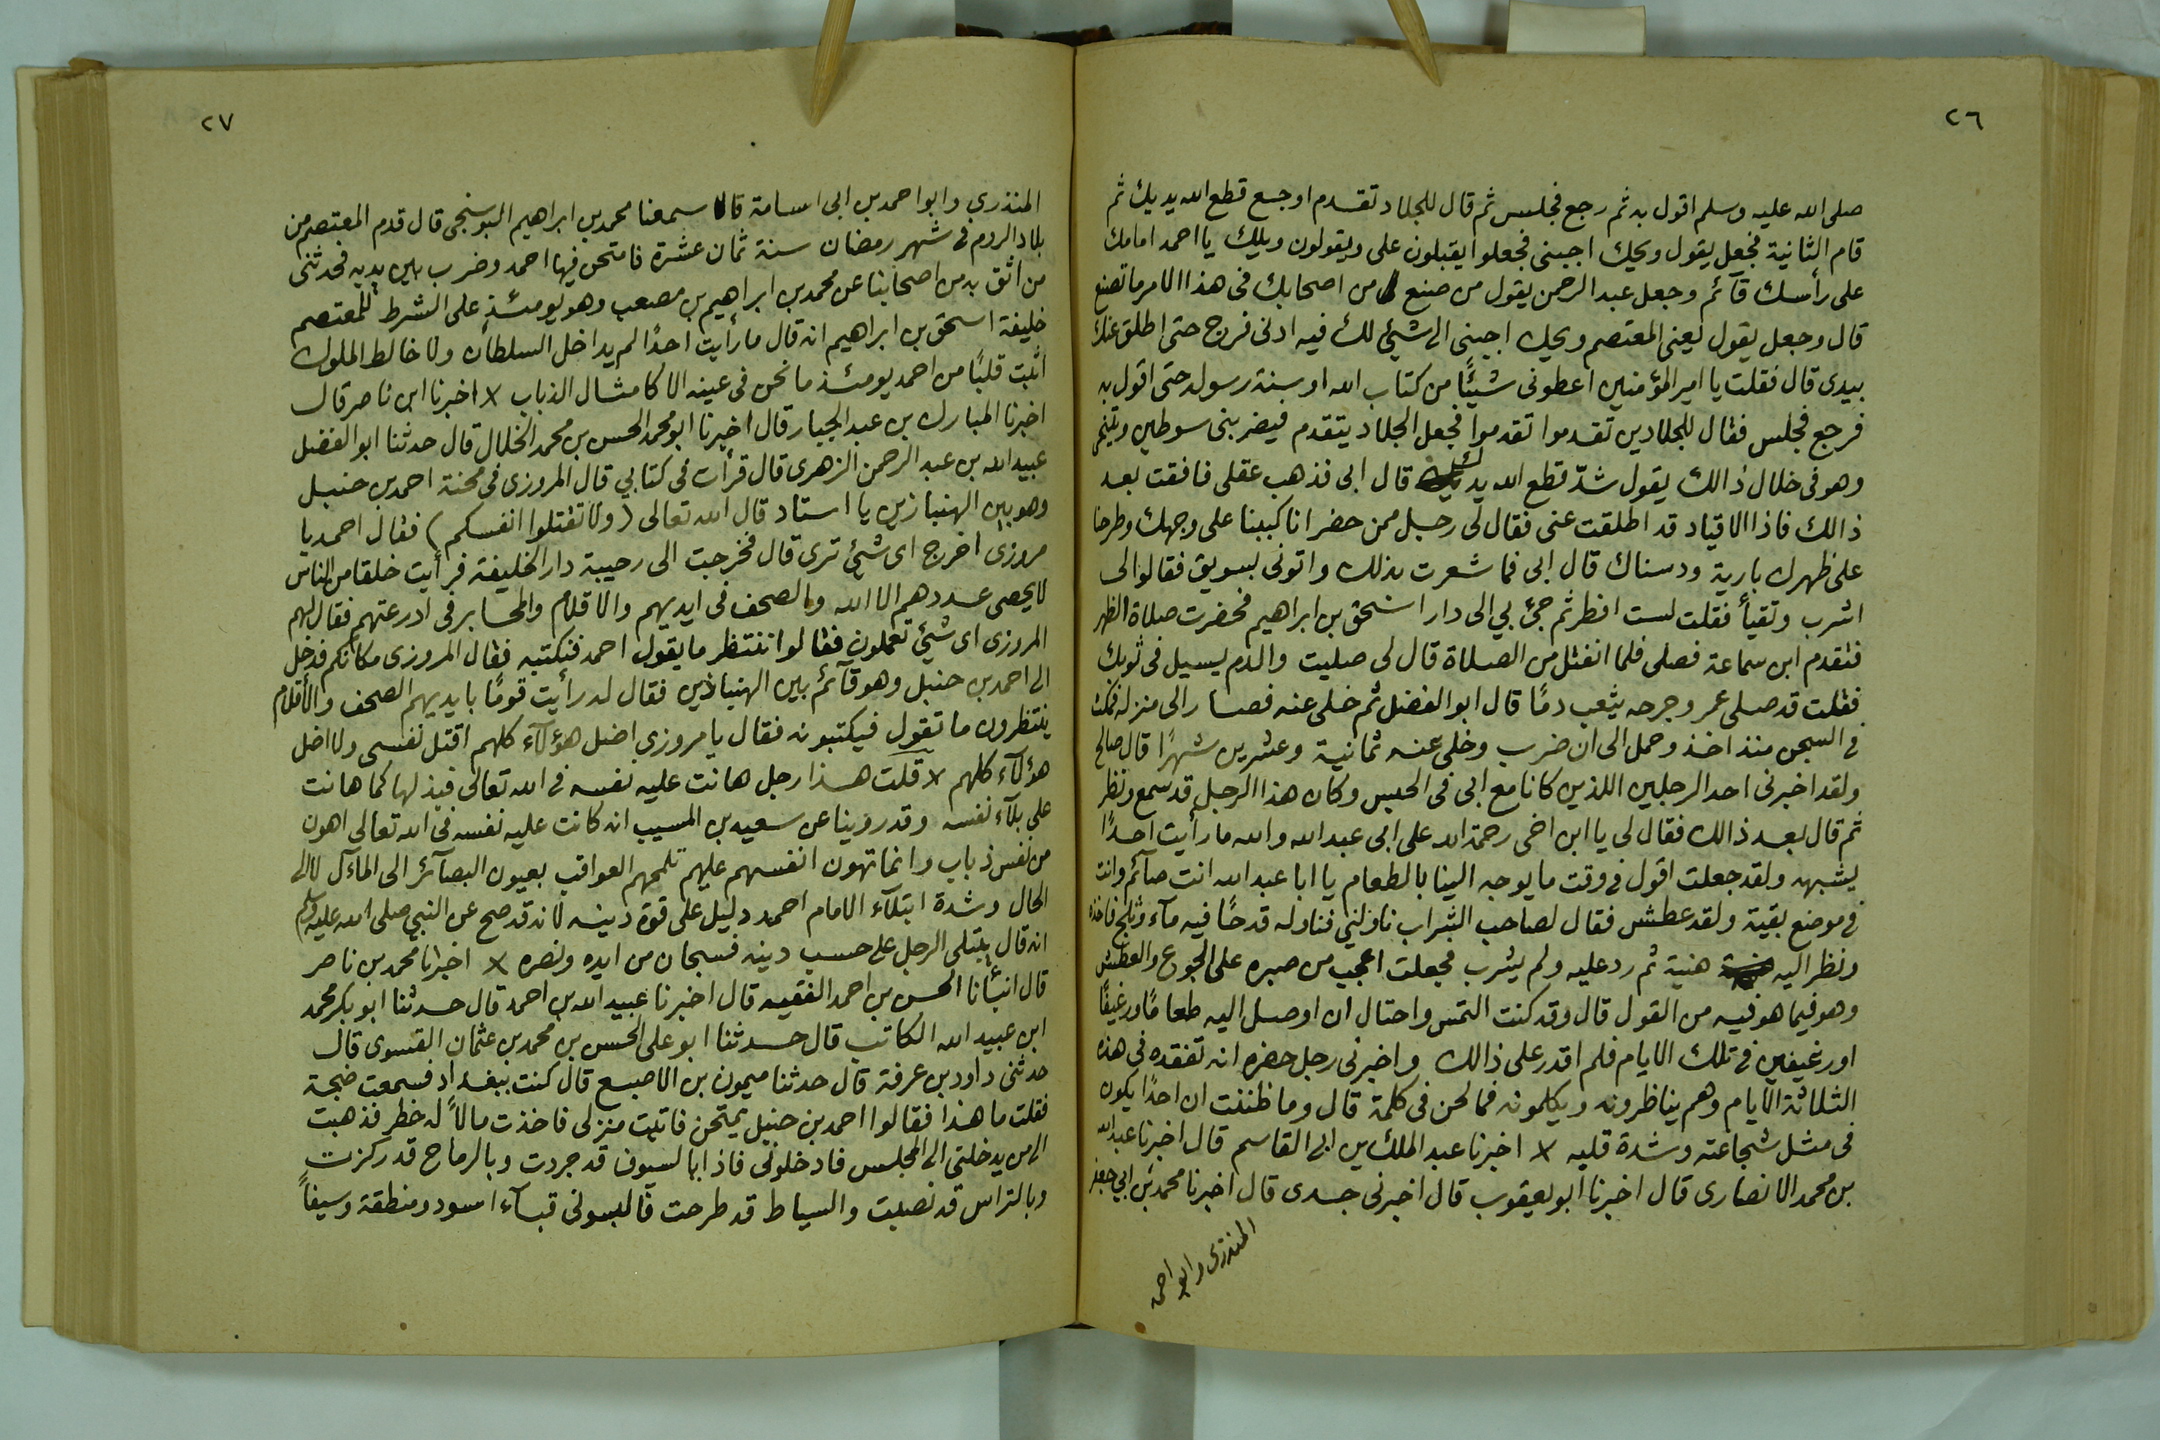 ٢٦
صلى الله عليه وسلم اقول به ثم رجع فجلس ثم قال للجلاد تقدم اوجع قطع الله يديك ثم
قام الثانية فجعل يقول ويحك اجبني فجعلوا يقبلون على ويقولون ويلك يا احمد امامك
على رأسك قآئم وجعل عبد الرحمن يقول من صنع من اصحابك في هذا الامر ما تصنع
قال وجعل يقول يعني المعتصم ويحك اجبني الى شيئ لك فيه ادنى فرج حتى اطلق عنك
بيدى قال فقلت يا امير المؤمنين اعطوني شيئًا من كتاب الله او سنة رسوله حتى اقول به
فرجع فجلس فقال للجلادين تقدموا تقدموا فجعل الجلاد يتقدم فيضربني سوطين ويتنحى
وهو في خلال ذالك يقول شدّ قطع الله يديك قال ابى فذهب عقلى فافقت بعد
ذالك فاذا الاقياد قد اطلقت عنى فقال لى رجل ممن حضر انا كببنا على وجهك وطرحنا
على ظهرك بارية ودسناك قال ابى فما شعرت بذلك واتونى بسويق فقالوا لى
اشرب وتقيأ فقلت لست افطر ثم جئ بي الى دار اسحق بن ابراهيم فحضرت صلاة الظهر
فتقدم ابن سماعة فصلى فلما انفتل من الصلاة قال لى صليت والدم يسيل فى ثوبك
فقلت قد صلى عمر وجرحه يثعب دمًا قال ابو الفضل ثم خلى عنه فصار الى منزله فمكث
في السجن منذ اخذ وحمل الى ان ضرب وخلى عنه ثمانية وعشرين شهرًا قال صالح
ولقد اخبرنى احد الرجلين اللذين كانا مع ابى فى الحبس وكان هذا الرجل قد سمع ونظر
ثم قال بعد ذالك فقال لى يا ابن اخى رحمة الله على ابى عبد الله والله ما رأيت احدًا
يشبهه ولقد جعلت اقول في وقت ما يوجه الينا بالطعام يا ابا عبد الله انت صآئم وانت
في موضع بقية ولقد عطش فقال لصاحب الشراب ناولني فناوله قدحًا فيه مآء وثلج فاخذه
ونظر اليه هنية ثم رد عليه ولم يشرب فجعلت اعجب من صبره على الجوع والعطش
وهو فيما هو فيه من القول قال وقد كنت التمس واحتال ان اوصل اليه طعامًا ورغيفًا
او رغيفين في تلك الايام فلم اقدر على ذالك واخبرنى رجل حضره انه تفقده فى هذه
الثلاثة الايام وهم يناظرونه ويكلمونه فما لحن فى كلمة قال وما ظننت ان احدًا يكون
فى مثل شجاعته وشدة قلبه × اخبرنا عبد الملك بن ابى القاسم قال اخبرنا عبد الله
بن محمد الانصارى قال اخبرنا ابو يعقوب قال اخبرنى جدى قال اخبرنا محمد بن ابي جعفر
المنذرى وابو احمد
٢٧
المنذري وابو احمد بن ابى اسامة قالا سمعنا محمد بن ابراهيم البوسنجى قال قدم المعتصم من
بلاد الروم فى شهر رمضان سنة ثمان عشرة فامتحن فيها احمد وضرب بين يديه فحدثنى
من اثق به من اصحابنا عن محمد بن ابراهيم بن مصعب وهو يومئذ على الشرط للمعتصم
خليفة اسحق بن ابراهيم انه قال ما رأيت احدًا لم يداخل السلطان ولا خالط الملوك
اثبت قلبًا من احمد يومئذ ما نحن فى عينه الا كامثال الذباب × اخبرنا ابن ناصر قال
اخبرنا المبارك بن عبد الجبار قال اخبرنا ابو محمد الحسن بن محمد الخلال قال حدثنا ابو الفضل
عبيد الله بن عبد الرحمن الزهرى قال قرأت فى كتابي قال المروزى فى محنة احمد بن حنبل
وهو بين الهنبازين يا استاد قال الله تعالى (ولا تقتلوا انفسكم) فقال احمد يا
مروزى اخرج اى شيئ ترى قال فخرجت الى رحيبة دار الخليفة فرأيت خلقا من الناس
لا يحصى عددهم الا الله والصحف فى ايديهم والاقلام والمحابر فى ادرعتهم فقال لهم
المروزى اى شيئ تعملون فقالوا ننتظر ما يقول احمد فنكتبه فقال المروزى مكانكم فدخل
الى احمد بن حنبل وهو قآئم بين الهنبازين فقال له رأيت قومًا بايديهم الصحف والأقلام
ينتظرون ما تقول فيكتبونه فقال يا مروزي اضل هؤلآء كلهم اقتل نفسى ولا اضل
هؤلآء كلهم × قلت هذا رجل هانت عليه نفسه في الله تعالى فبذلها كما هانت
على بلآء نفسه وقد روينا عن سعيد بن المسيب انه كانت عليه نفسه فى الله تعالى اهون
من نفس ذباب وانما تهون انفسهم عليهم تلمحهم العواقب بعيون البصآئر الى المآل لا الى
الحال وشدة ابتلآء الامام احمد دليل على قوة دينه لانه قد صح عن النبي صلى الله عليه وسلم
انه قال يبتلى الرجل على حسب دينه فسبحان من ايده ونصره × اخبرنا محمد بن ناصر
قال انبأنا الحسن بن احمد الفقيه قال اخبرنا عبيد الله بن احمد قال حدثنا ابو بكر محمد
ابن عبيد الله الكاتب قال حدثنا ابو على الحسن بن محمد بن عثمان الفسوى قال
حدثنى داود بن عرفة قال حدثنا ميمون بن الاصبع قال كنت ببغداد فسمعت ضجة
فقلت ما هذا فقالوا احمد بن حنبل يمتحن فاتيت منزلى فاخذت مالاً له خطر فذهبت
الى من يدخلنى الى المجلس فادخلونى فاذا بالسيوف قد جردت وبالرماح قد ركزت
وبالتراس قد نصبت والسياط قد طرحت فألبسونى قبآء اسود ومنطقة وسيفاً